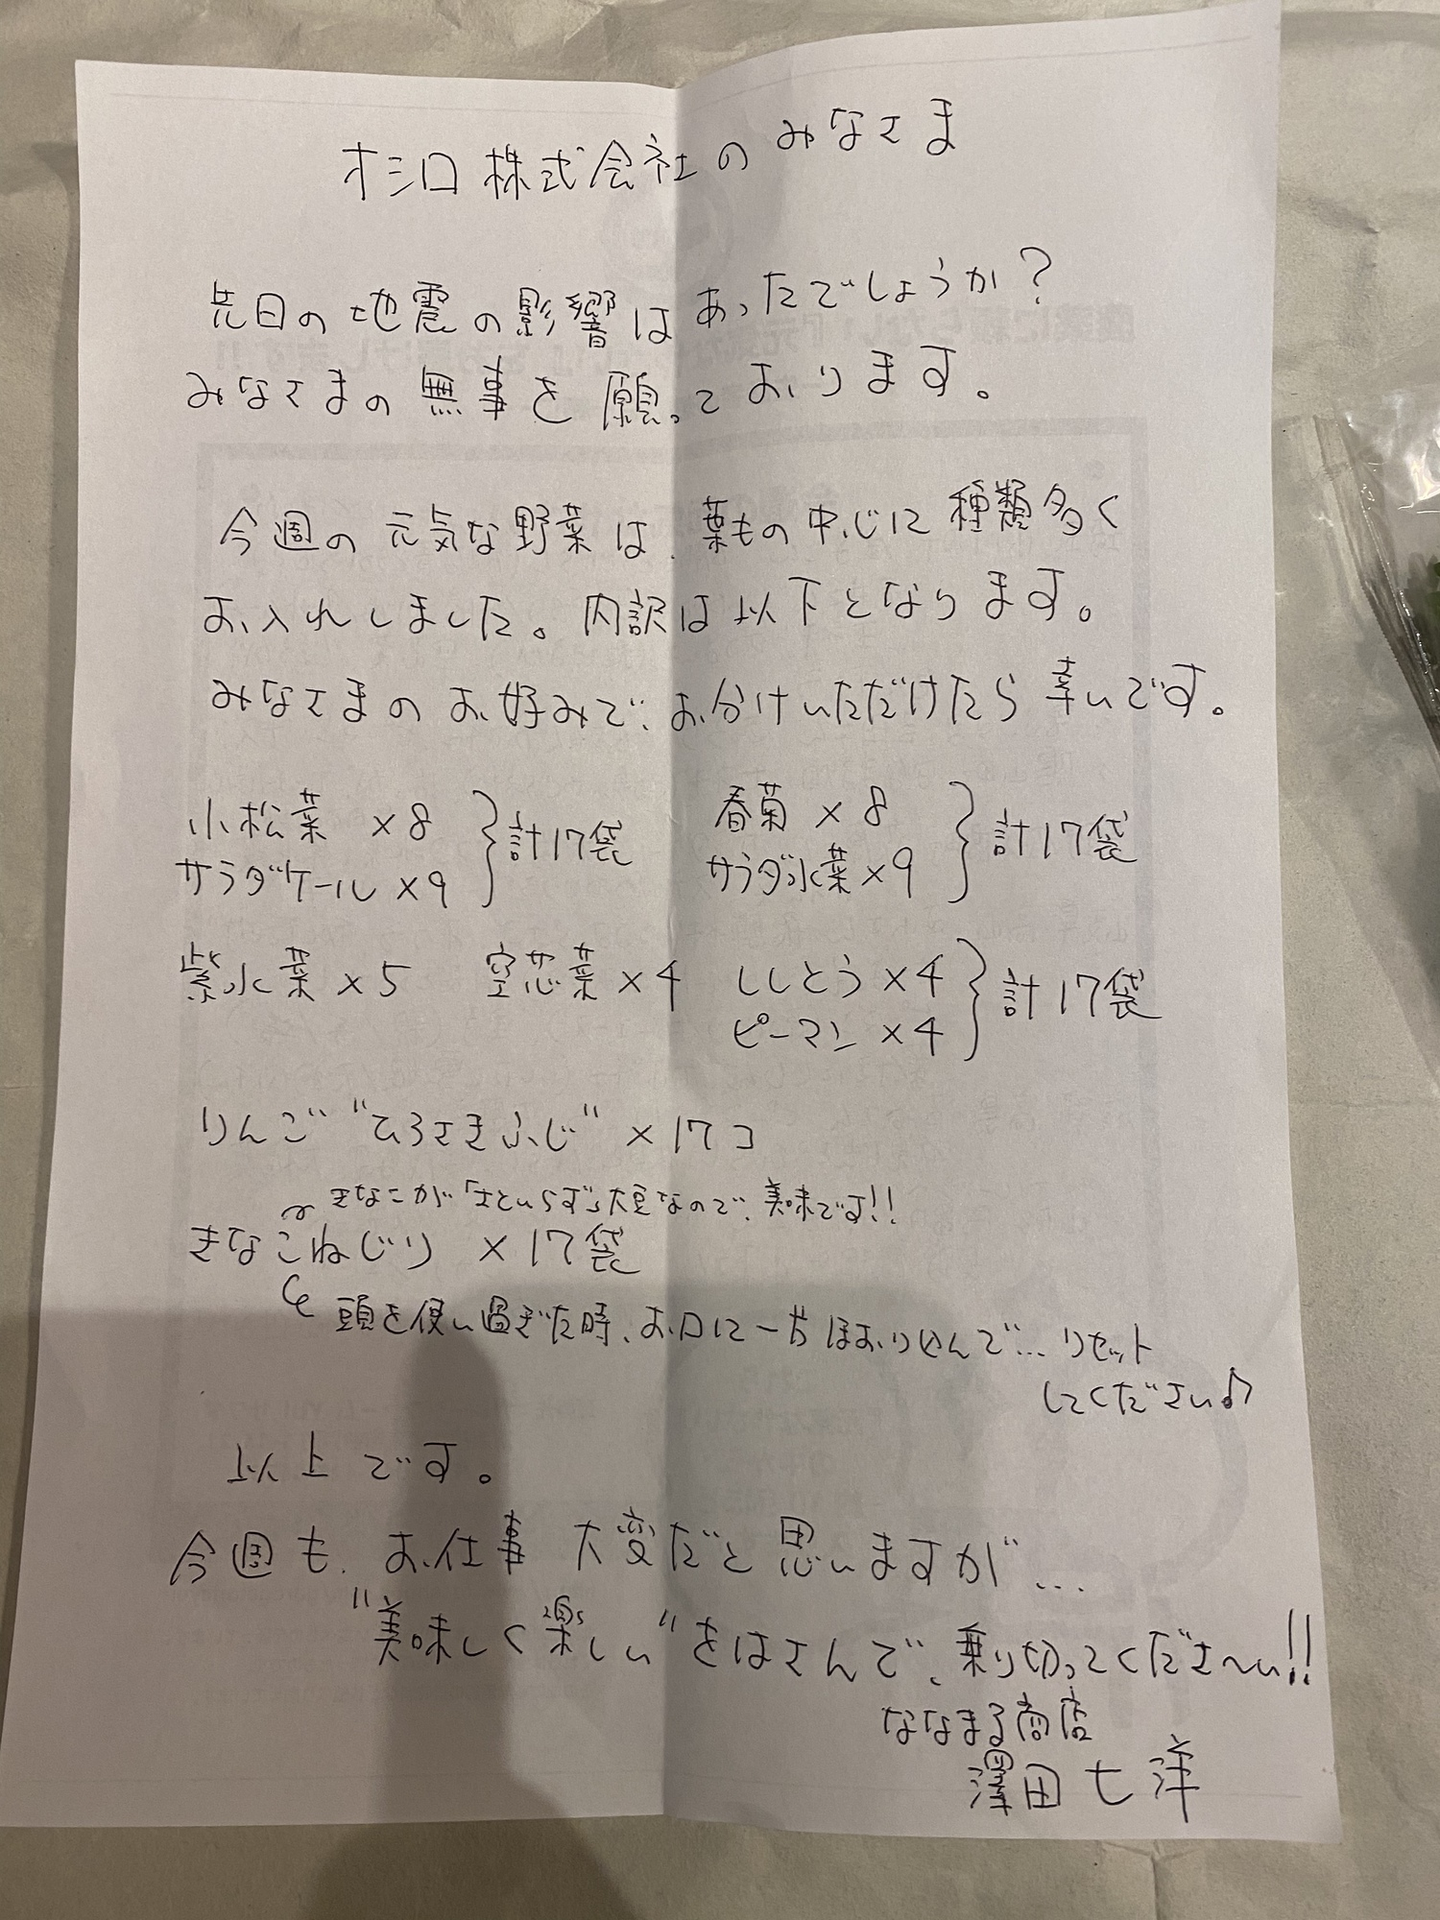 オシロ株式会社のみなさま
先日の地震の影響はあったでしょうか?
みなさまの無事を願っております。
今週の元気な野菜は、葉もの中心に種類多く
お入れしました。内訳は以下となります。
みなさまのお好みで、お分けいただけたら幸いです。
小松菜 ×8
サラダケール ×9
計17袋
春菊 ×8
サラダ水菜 ×9
計17袋
紫水菜 ×5 空芯菜 ×4 ししとう ×4
ピーマン ×4
計17袋
りんご "ひろさきふじ" ×17コ
きなこが「さといらず」大豆なので、美味です!!
きなこねじり ×17袋
頭を使い過ぎた時、お口に一片ほおり込んで…リセット
してください♪
以上です。
今週も、お仕事大変だと思いますが…
"美味しく楽しい"をはさんで、乗り切ってくださ〜い!!
ななまる商店
澤田七洋